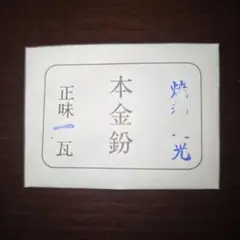 焼 光
本金鈖
正味一瓦